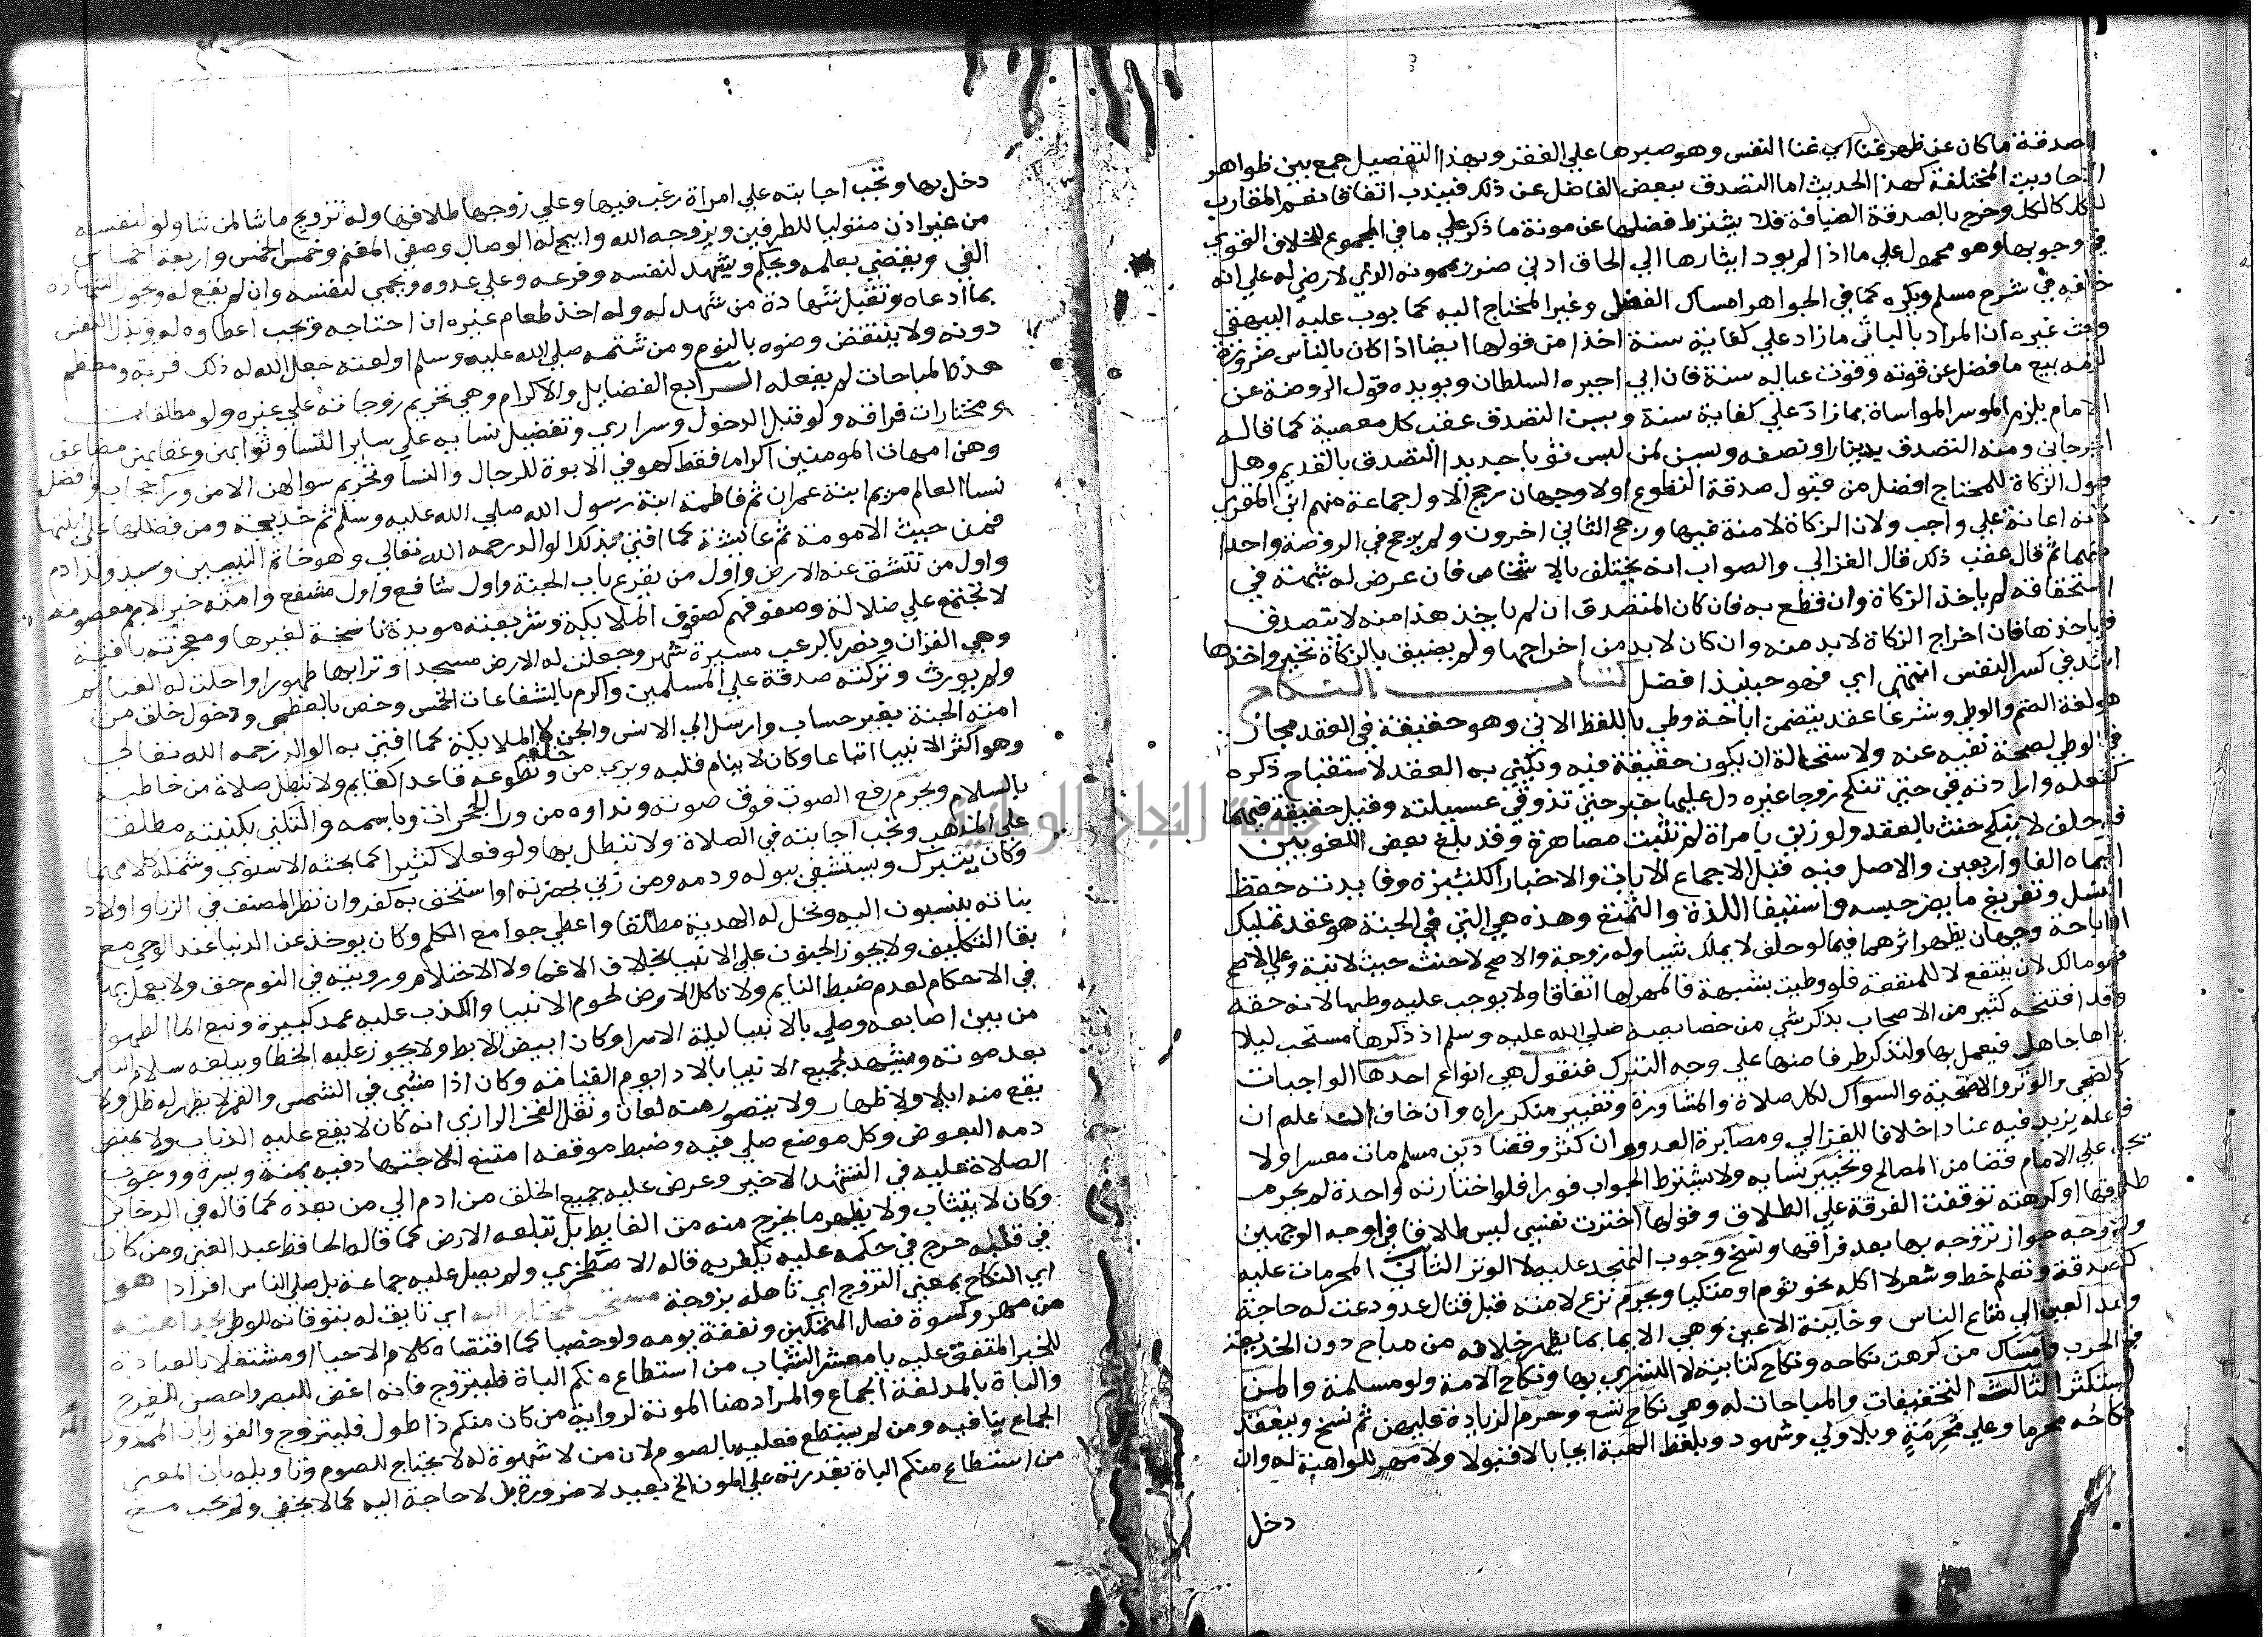 الصدقة ما كان عن ظهر غنا اي غنا النفس وهو صبرها علي الفقر وبهذا التفصيل جمع بين ظواهر
الاحاديث المختلفة كهذا الحديث اما التصدق ببعض الفاضل عن ذلك فيندب اتفاقا نعم المقارب
للكل كالكل وخرج بالصدقة الضيافة فلا يشترط فضلها عن مونة ما ذكر علي ما في المجموع للخلاف القوي
في وجوبها وهو محمول علي ما اذا لم يود ايثارها الي الحاق ادني ضرر بممونه الذي لا رضي له علي انه
خالفه في شرح مسلم ويكره كما في الجواهر امساك الفضل وغير المحتاج اليه كما بوب عليه البيهقي
وبحث غيره ان المراد بالباقي ما زاد علي كفاية سنة اخذا من قولها ايضا اذا كان بالناس ضرورة
لزمه بيع ما فضل عن قوته وقوت عياله سنة فان ابي اجبره السلطان ويويده قول الروضة عن
الامام يلزم الموسر المواساة بما زاد علي كفاية سنة ويسن التصدق عقب كل معصية كما قاله
الجرجاني ومنه التصدق بدينار او نصفه ويسن لمن لبس ثوبا جديدا التصدق بالقديم وهل
قبول الزكاة للمحتاج افضل من قبول صدقة التطوع او لا وجهان رجح الاول جماعة منهم ابن المقري
لانه اعانة علي واجب ولان الزكاة لا منة فيها ورجح الثاني اخرون ولم يرجح في الروضة واحدا
منهما ثم قال عقب ذلك قال الغزالي والصواب انه يختلف بالاشخاص فان عرض له شبهة في
استحقاقه لم ياخذ الزكاة وان قطع به فان كان المتصدق ان لم ياخذ هذا منه لا يتصدق
فلياخذها فان اخراج الزكاة لا بد منه وان كان لا بد من اخراجها ولم يضيق بالزكاة تخير واخذها
اشد في كسر النفس انتهي اي فهو حينيذ افضل كتاب النكاح
هو لغة الضم والوطي وشرعا عقد يتضمن اباحة وطي باللفظ الاتي وهو حقيقة في العقد مجاز
في الوطي لصحة نفيه عنه ولاستحالة ان يكون حقيقة فيه ويكني به العقد لاستقباح ذكره
كفعله وارادته في حتي تنكح زوجا غيره دل عليها خبر حتي تذوقي عسيلته وقيل حقيقة فيهما
فلو حلف لا ينكح حنث بالعقد ولو زني بامراة لم تثبت مصاهرة وقد بلغ بعض اللغويين
اسماه الفا واربعين والاصل فيه قبل الاجماع الايات والاخبار الكثيرة وفايدته حفظ
النسل وتفريغ ما يضر حبسه واستيفا اللذة والتمتع وهذه هي التي في الجنة هو عقد تمليك
او اباحة وجهان يظهر اثرهما فيما لو حلف لا يملك شيا وله زوجة والاصح لا حنث حيث لا نية وعلي الاصح
فهو مالك لان ينتفع لا للمنفعة فلو وطيت بشبهة فالمهر لها اتفاقا ولا يوجب عليه وطيها لانه حقه
وقد افتتحه كثير من الاصحاب بذكر شي من خصايصه صلي الله عليه وسلم اذ ذكرها مستحب ليلا
يراها جاهل فيعمل بها ولنذكر طرفا منها علي وجه التبرك فنقول هي انواع احدها الواجبات
كالضحي والوتر والاضحية والسواك لكل صلاة والمشاورة وتغيير منكر راه وان خاف او علم ان
فاعله يزيد فيه عنادا خلافا للغزالي ومصابرة العدو وان كثر وقضا دين مسلم مات معسرا ولا
يجب علي الامام قضا من المصالح وتخيير نسايه ولا يشترط الجواب فورا فلو اختارته واحدة لم يحرم
طلاقها او كرهته توقفت الفرقة علي الطلاق وقولها اخترت نفسي ليس طلاقا في اوجه الوجهين
والاوجه جواز تزوجه بها بعد فراقها ونسخ وجوب التهجد عليه لا الوتر الثاني المحرمات عليه
كصدقة وتعلم خط وشعر لا اكله نحو ثوم او متكيا ويحرم نزع لامته قبل قتال عدو دعت له حاجة
ومد العين الي متاع الناس وخاينة الاعين وهي الايما بما يظهر خلافه من مباح دون الخديعة
في الحرب وامساك من كرهت نكاحه ونكاح كتابية لا التسري بها ونكاح الامة ولو مسلمة والمن
ليستكثر الثالث التخفيفات والمباحات له وهي نكاح تسع وحرم الزيادة عليهن ثم نسخ وينعقد
نكاحه محرما وعلي مُحرِمَةٍ وبلا ولي وشهود وبلفظ الهبة ايجابا لا قبولا ولا مهر للواهبة له وان
دخل
دخل بها وتجب اجابته علي امراة رغب فيها وعلي زوجها طلاقها وله تزويج ما شا لمن شا ولو لنفسه
من غير اذن متوليا للطرفين ويزوجه الله وابيح له الوصال وصفي المغنم وخمس الخمس واربعة اخماس
الفي ويقضي بعلمه ويحكم ويشهد لنفسه وفرعه وعلي عدوه ويحمي لنفسه وان لم يقع له ويجوز الشهادة
بما ادعاه وتقبل شهادة من شهد له وله اخذ طعام غيره ان احتاجه ويجب اعطاوه له وبذل النفس
دونه ولا ينتقض وضوه بالنوم ومن شتمه صلي الله عليه وسلم او لعنه جعل الله له ذلك قربة ومعظم
هذه المباحات لم يفعله الرابع الفضايل والاكرام وهي تحريم زوجاته علي غيره ولو مطلقات
ومختارات فراقه ولو قبل الدخول وسراري وتفضيل نسايه علي ساير النسا وثوابهن وعقابهن مضاعف
وهن امهات المومنين اكراما فقط كهو في الابوة للرجال والنسا وتحريم سوالهن الا من ورا حجاب وافضل
نسا العالم مريم ابنة عمران ثم فاطمة ابنة رسول الله صلي الله عليه وسلم ثم خديجة ومن فضلها علي ابنتها
فمن حيث الامومة ثم عايشة كما افتي بذلك الوالد رحمه الله تعالي وهو خاتم النبيين وسيد ولد ادم
واول من تنشق عنه الارض واول من يقرع باب الجنة واول شافع واول مشفع وامته خير الامم معصومة
لا تجتمع علي ضلالة وصفوفهم كصفوف الملايكة وشريعته مويدة ناسخة لغيرها ومعجزته باقية
وهي القران ونصر بالرعب مسيرة شهر وجعلت له الارض مسجدا وترابها طهورا واحلت له الغنايم
ولم يورث وتركته صدقة علي المسلمين واكرم بالشفاعات الخمس وخص بالعظمي ودخول خلق من
امته الجنة بغير حساب وارسل الي الانس والجن لا الملايكة كما افتي به الوالد رحمه الله تعالي
وهو اكثر الانبيا اتباعا وكان لا ينام قلبه ويري من خلفه وتطوعه قاعدا كقايم ولا تبطل صلاة من خاطبه
بالسلام ويحرم رفع الصوت فوق صوته ونداوه من ورا الحجرات وباسمه والتكني بكنيته مطلقا
علي المذهب وتجب اجابته في الصلاة ولا تبطل بها ولو فعلا كثيرا كما بحثه الاسنوي وشمله كلامهما
وكان يتبرك ويستشفي ببوله ودمه ومن زني بحضرته او استخف به كفر وان نظر المصنف في الزنا واولاد
بناته ينسبون اليه وتحل له الهدية مطلقا واعطي جوامع الكلم وكان يوخذ عن الدنيا عند الوحي مع
بقا التكليف ولا يجوز الجنون علي الانبيا بخلاف الاغما ولا الاحتلام ورويته في النوم حق ولا يعمل بها
في الاحكام لعدم ضبط النايم ولا تاكل الارض لحوم الانبيا والكذب عليه عمدا كبيرة ونبع الما الطهور
من بين اصابعه وصلي بالانبيا ليلة الاسرا وكان ابيض الابط ولا يجوز عليه الخطا ويبلغه سلام الناس
بعد موته ويشهد لجميع الانبيا بالادا يوم القيامة وكان اذا مشي في الشمس والقمر لا يظهر له ظل ولا
يقع منه ايلا ولا ظهار ولا يتصور منه لعان ونقل الفخر الرازي انه كان لا يقع عليه الذباب ولا يمتص
دمه البعوض وكل موضع صلي فيه وضبط موقفه امتنع الاجتهاد فيه يمنة ويسرة ووجوب
الصلاة عليه في التشهد الاخير وعرض عليه جميع الخلق من ادم الي من بعده كما قاله في الذخاير
وكان لا يتثاب ولا يظهر ما يخرج منه من الغايط بل تبتلعه الارض كما قاله الحافظ عبد الغني ومن كان
في قلبه حرج في حكمه عليه يكفر به قاله الاصطخري ولم يصل عليه جماعة بل صلي الناس افرادا هو
اي النكاح بمعني التزوج اي تاهله بزوجة مستحب لمحتاج اليه اي تايق له بتوقانه للوطي يجد اهبته
من مهر وكسوة فصل التمكين ونفقة يومه ولو خصيا كما اقتضاه كلام الاحيا او مشتغلا بالعبادة
للخبر المتفق عليه يا معشر الشباب من استطاع منكم الباة فليتزوج فانه اغض للبصر واحصن للفرج
والباة بالمد لغة الجماع والمراد هنا المونة لرواية من كان منكم ذا طول فليتزوج والقول بان المراد
الجماع ينافيه ومن لم يستطع فعليه بالصوم لان من لا شهوة له لا يحتاج للصوم وتاويله بان المعني
من استطاع منكم الباة بقدرته علي المون الخ بعيد لا ضرورة بل لا حاجة اليه كما لا يخفي ولم يجب مع